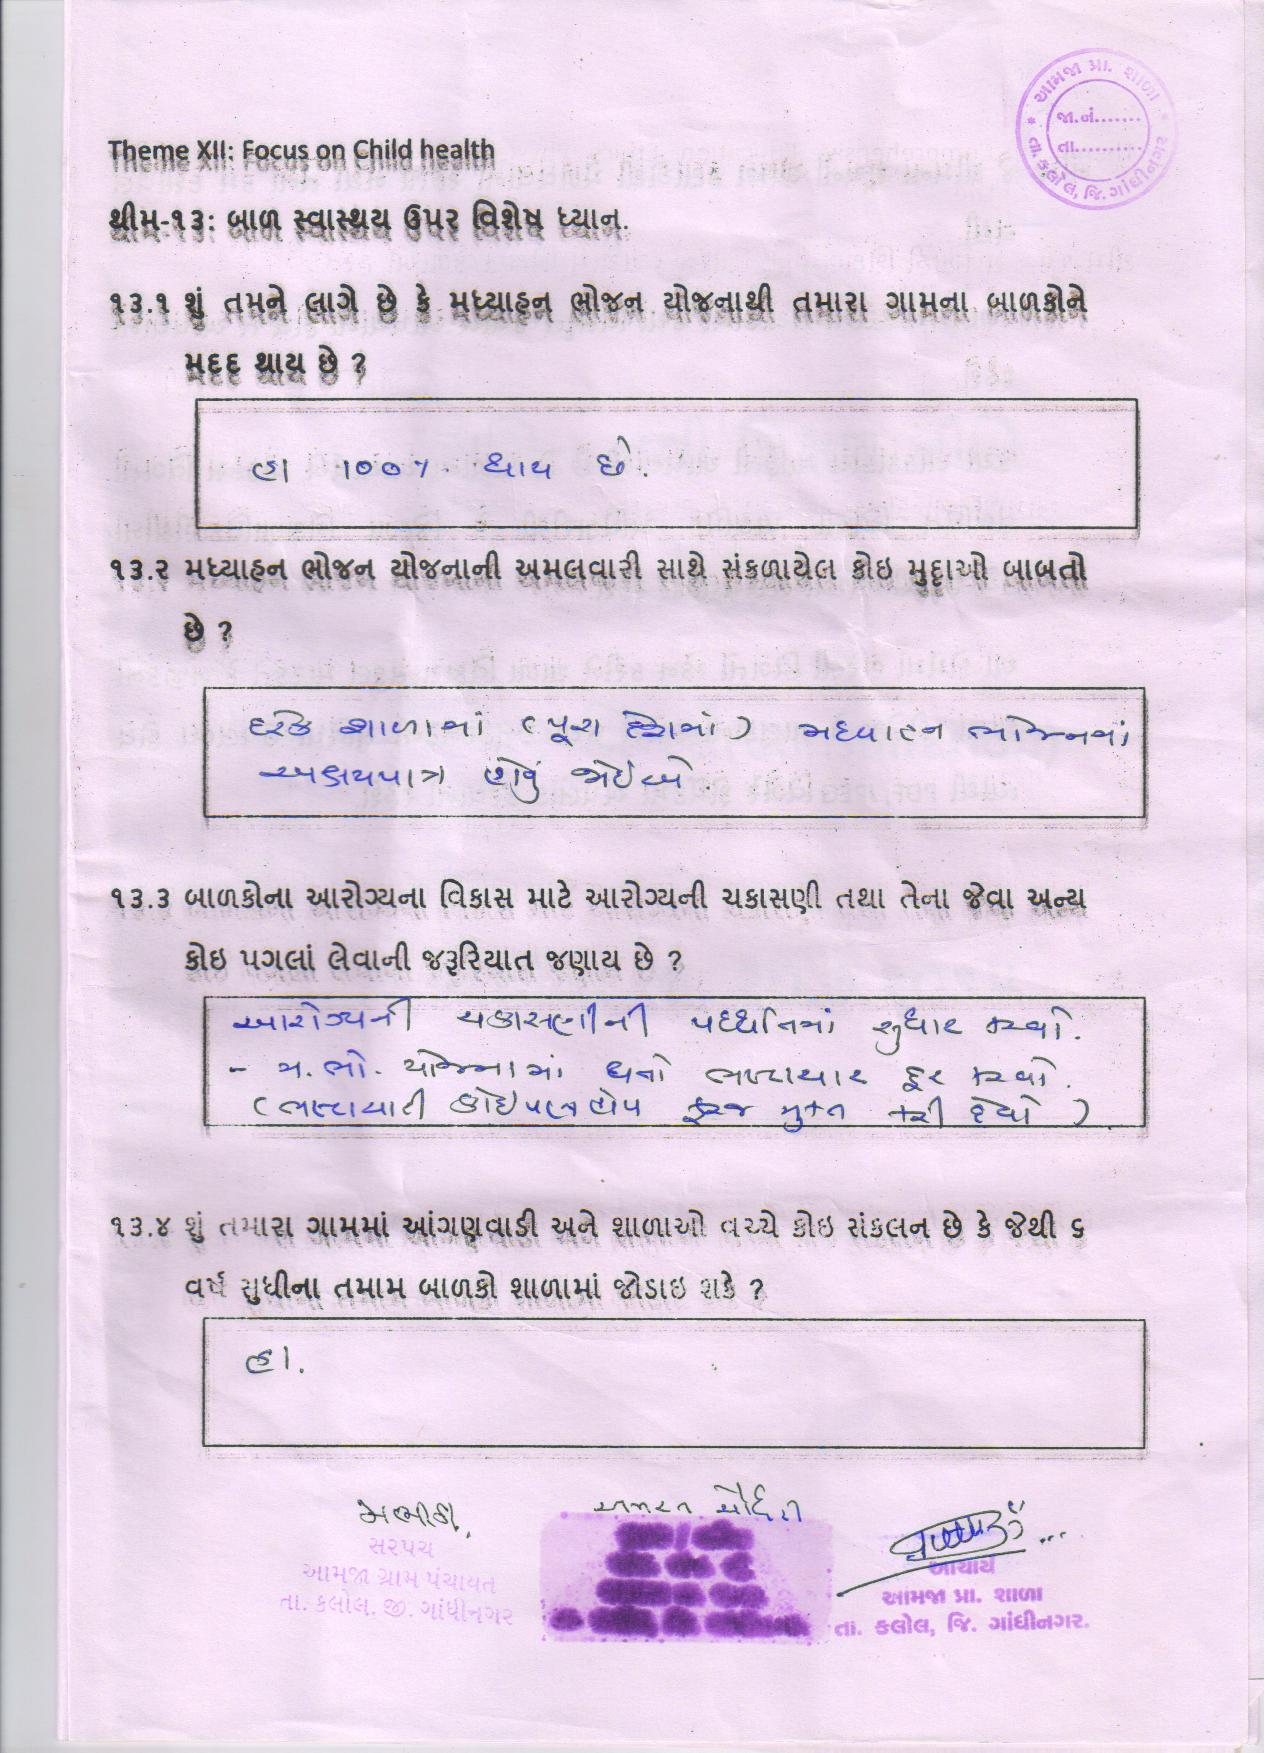 આમજા પ્રા. શાળા
જા.નં.......
તા..........
તા. કલોલ, જિ. ગાંધીનગર
Theme XII: Focus on Child health
થીમ-૧૩: બાળ સ્વાસ્થય ઉપર વિશેષ ધ્યાન.
૧૩.૧ શું તમને લાગે છે કે મધ્યાહન ભોજન યોજનાથી તમારા ગામના બાળકોને
મદદ થાય છે ?
હા 100% થાય છે.
૧૩.૨ મધ્યાહન ભોજન યોજનાની અમલવારી સાથે સંકળાયેલ કોઇ મુદ્દાઓ બાબતો
છે ?
દરેક શાળામાં (પૂરા દેશમાં) મધ્યાહન ભોજનમાં
અક્ષયપાત્ર હોવું જોઈએ.
૧૩.૩ બાળકોના આરોગ્યના વિકાસ માટે આરોગ્યની ચકાસણી તથા તેના જેવા અન્ય
કોઇ પગલાં લેવાની જરૂરિયાત જણાય છે ?
આરોગ્યની ચકાસણીની પધ્ધતિમાં સુધાર કરવો.
- મ.ભો. યોજનામાં થતો ભ્રષ્ટાચાર દૂર કરવો.
(ભ્રષ્ટાચારી કોઈપણ હોય ફરજ મુક્ત કરી દેવો)
૧૩.૪ શું તમારા ગામમાં આંગણવાડી અને શાળાઓ વચ્ચે કોઇ સંકલન છે કે જેથી ૬
વર્ષ સુધીના તમામ બાળકો શાળામાં જોડાઇ શકે ?
હા.
ચૌધરી
સરપચ
આમજા ગ્રામ પંચાયત
તા. કલોલ. જી. ગાંધીનગર
આચાર્ય
આમજા પ્રા. શાળા
તા. કલોલ, જિ. ગાંધીનગર.